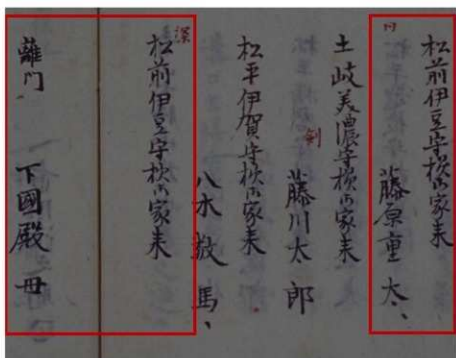 松前伊豆守様御家来
藤原重太
土岐美濃守様御家来
藤川太郎
松平伊賀守様御家来
八木数馬
松前伊豆守様御家来
離門 下國殿母